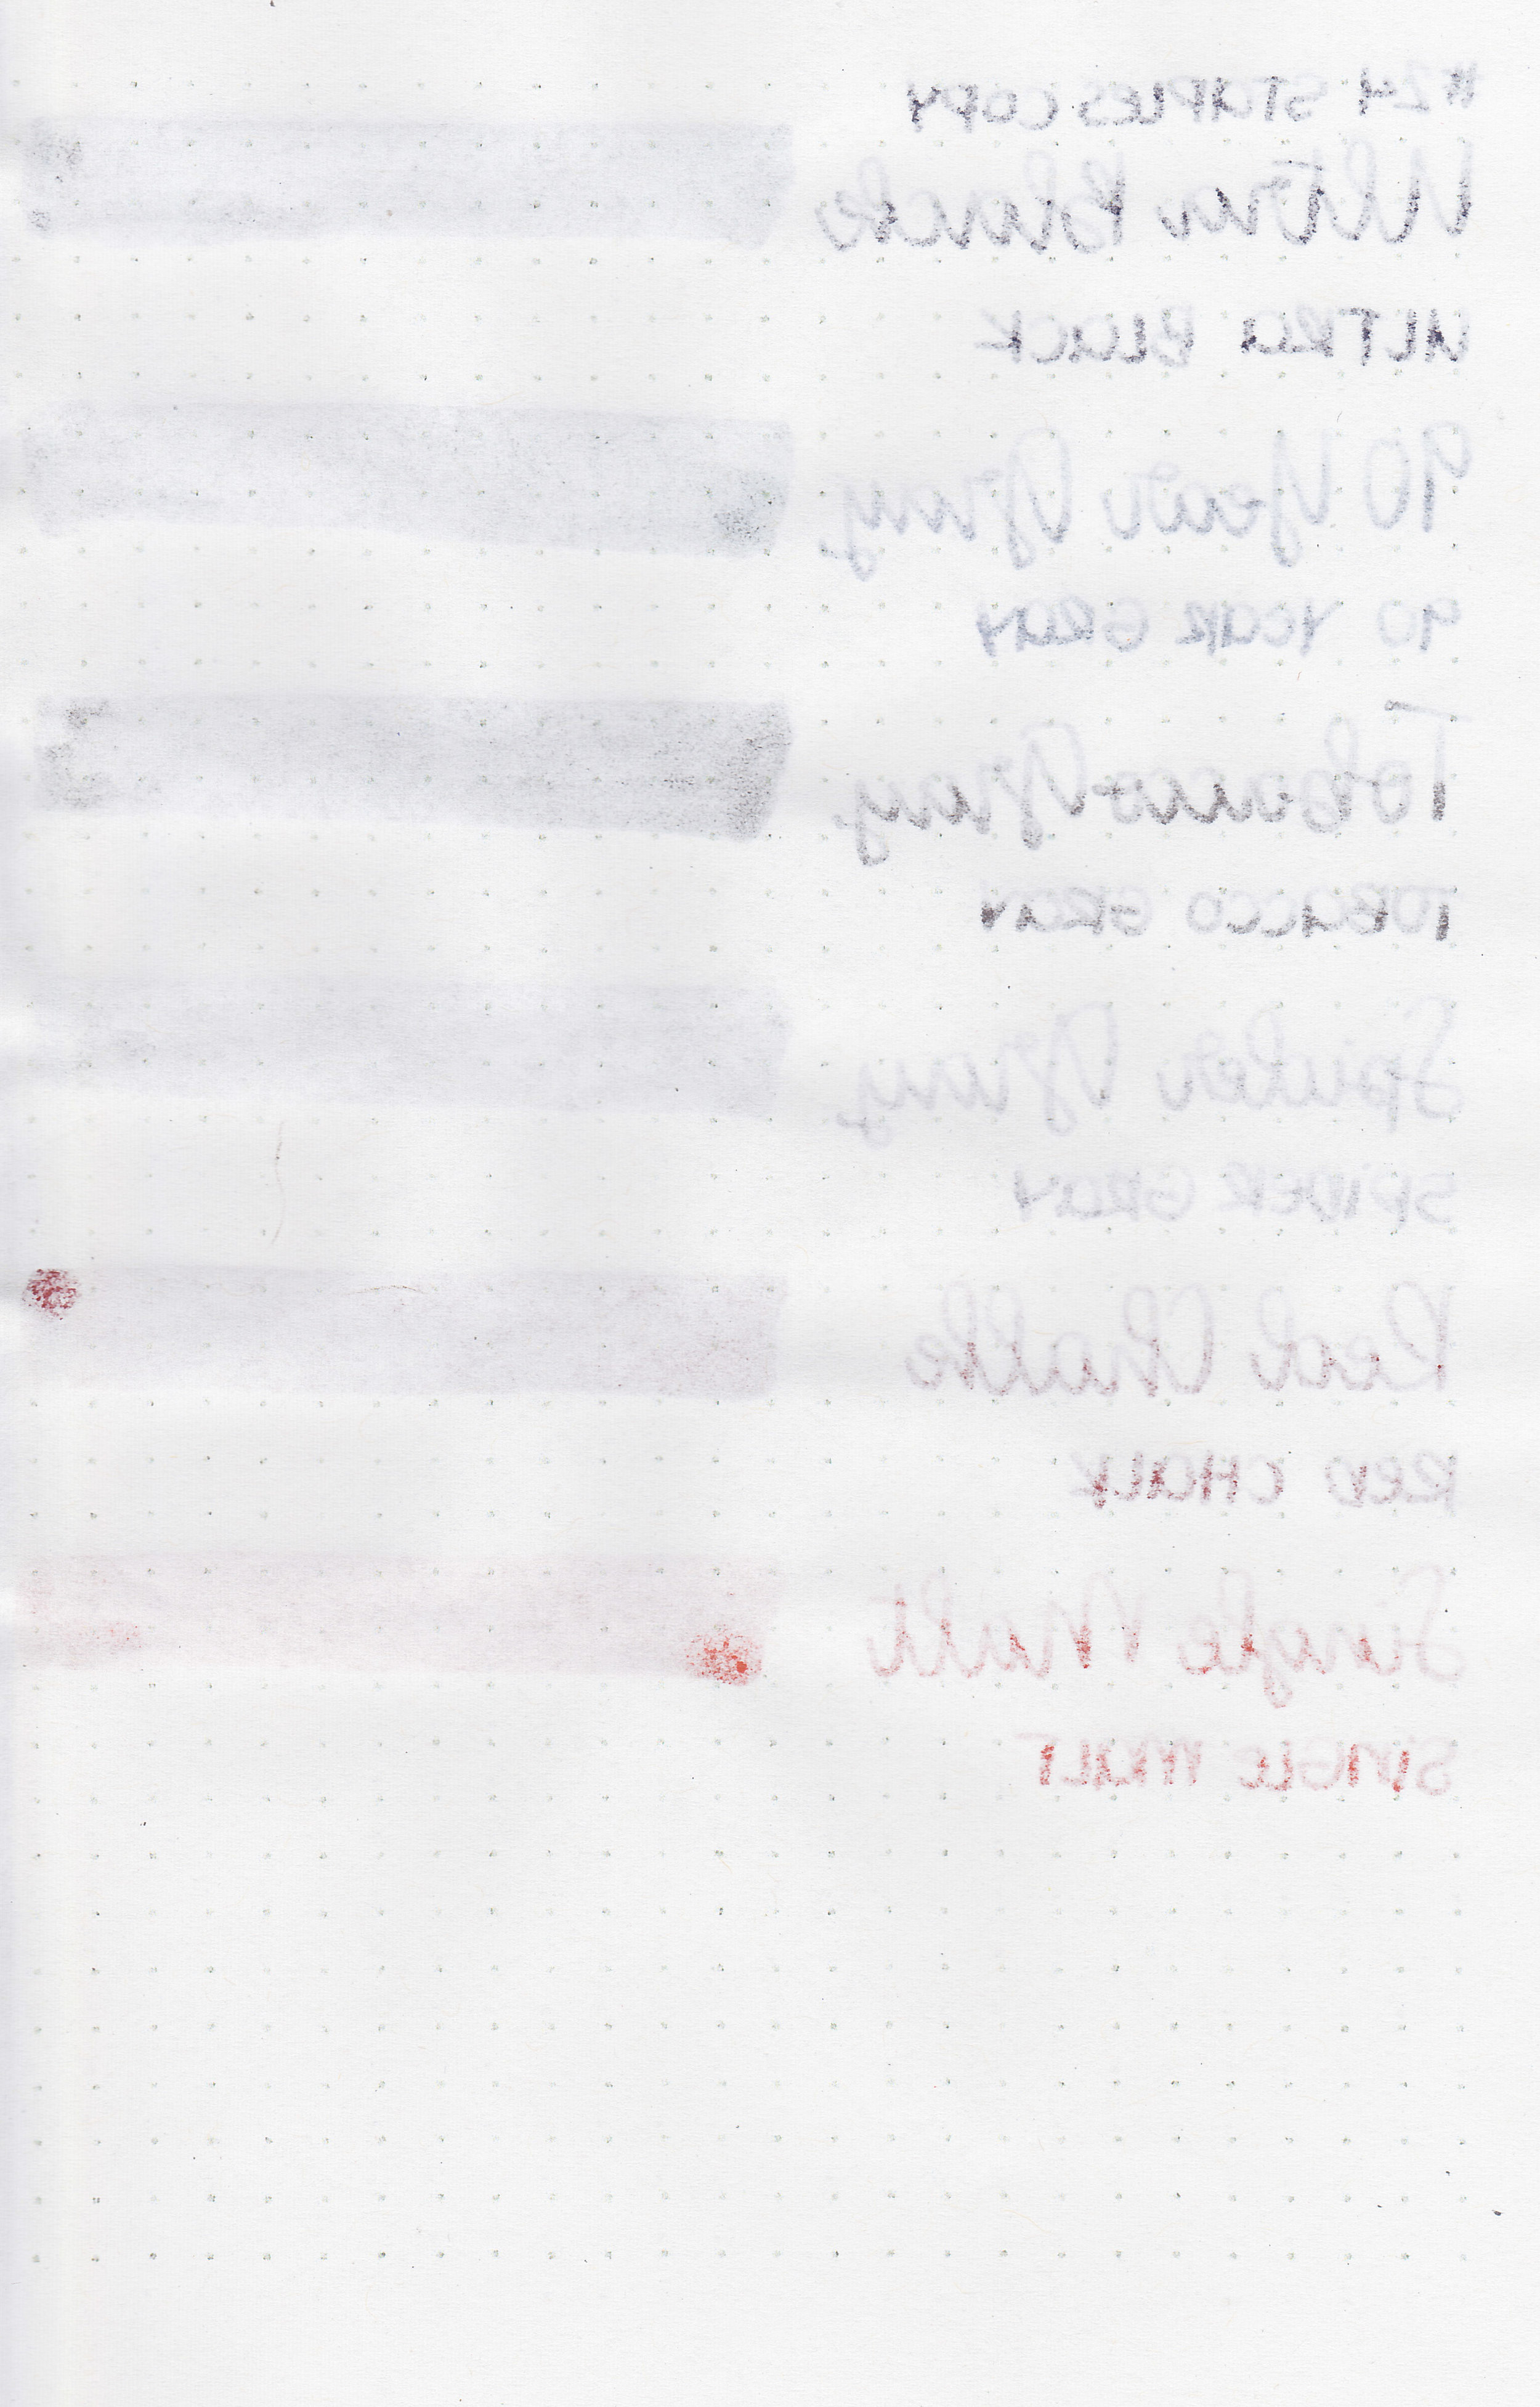 #24 STAPLES COPY
Ultra Black
ULTRA BLACK
90 Year Gray
90 YEAR GRAY
Tobacco Gray
TOBACCO GRAY
Spider Gray
SPIDER GRAY
Red Chalk
RED CHALK
Single Malt
SINGLE MALT